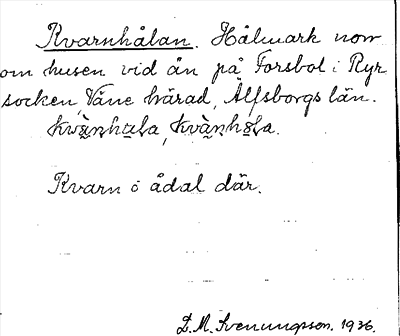 Kvarnhålan. Hålmark norr
om husen vid ån på Forsbol i Ryr
socken, Väne härad, Älfsborgs län.
kvànhala, kvànhåla.
Kvarn i ådal där.
D. M. Svenungsson. 1936.